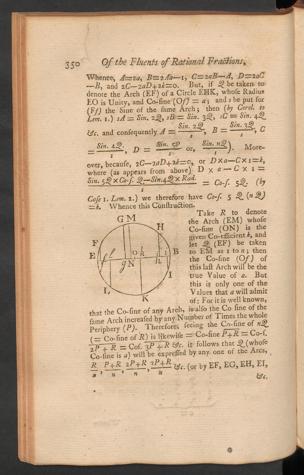 350 Of the Fluents of Rational Fractions.
Whence, A=2a, B=2Aa—1, C=2aB—A, D=2aC
—B, and 2C—2aD+2k=0. But, if Q be taken to
denote the Arch (EF) of a Circle EHK, whose Radius
EO is Unity, and Co-sine (Of) = a; and s be put for
(Ff) the Sine of the same Arch; then (by Corol. to
Lem. 1.) sA = Sin. 2Q, sB = Sin. 3Q, sC = Sin. 4Q
&c. and consequently A = Sin. 2Q/s, B = Sin. 3Q/s, C
= Sin. 4Q/s, D = Sin. 5Q/s or, Sin. nQ/s. More-
over, because, 2C—2aD+2k=0, or D×a—C×1=k,
where (as appears from above) D × a — C × 1 =
Sin. 5Q × Co-s. Q — Sin. 4Q × Rad./s = Co-s. 5Q. (by
Case 1. Lem. 1.) we therefore have Co-s. 5 Q (n Q)
= k. Whence this Construction.
Take R to denote
the Arch (EM) whose
Co-sine (ON) is the
given Co-efficient k, and
let Q (EF) be taken
to EM as 1 to n; then
the Co-sine (Of) of
this last Arch will be the
true Value of a. But
this is only one of the
Values that a will admit
of: For it is well known,
G M
F H
E f O k h B
g N i
I
L
K
that the Co-sine of any Arch, is also the Co-sine of the
same Arch increased by any Number of Times the whole
Periphery (P). Therefore seeing the Co-sine of nQ
(= Co-sine of R) is likewise = Co-sine P+R = Co-s.
2P + R = Cos. 3P + R &c. it follows that Q (whose
Co-sine is a) will be expressed by any one of the Arcs,
R/n, P+R/n, 2P+R/n, 3P+R/n &c. (or by EF, EG, EH, EI,
&c.